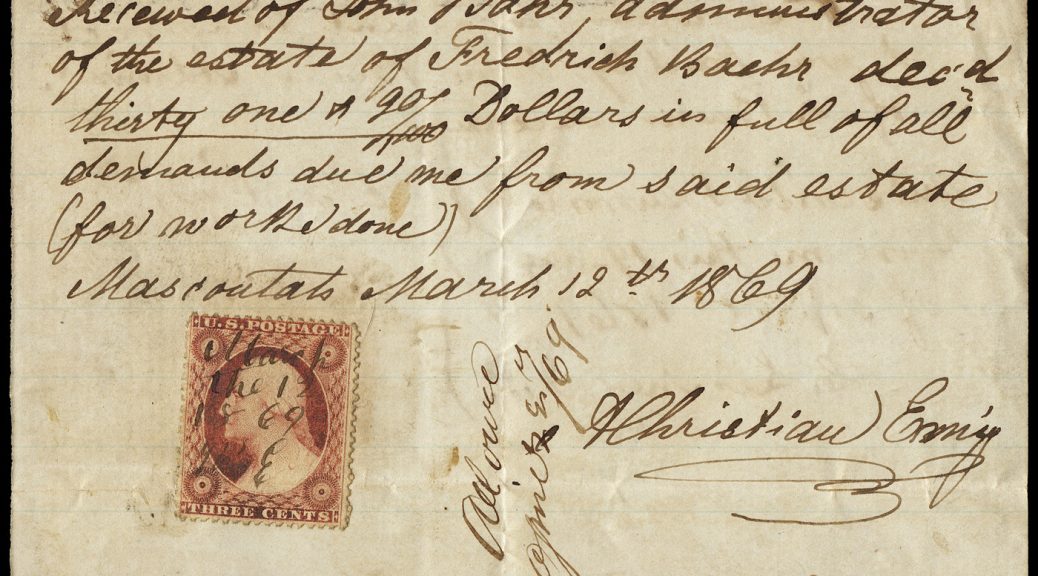 Received of John Bahr, administrator
of the estate of Fredrich Baehr dec'd
thirty one & 90/100 Dollars in full of all
demands due me from said estate
(for work done)
Mascoutah March 12th 1869
U.S. POSTAGE
March
the 12
1869
THREE CENTS
Christian Emig
Allowed
/69